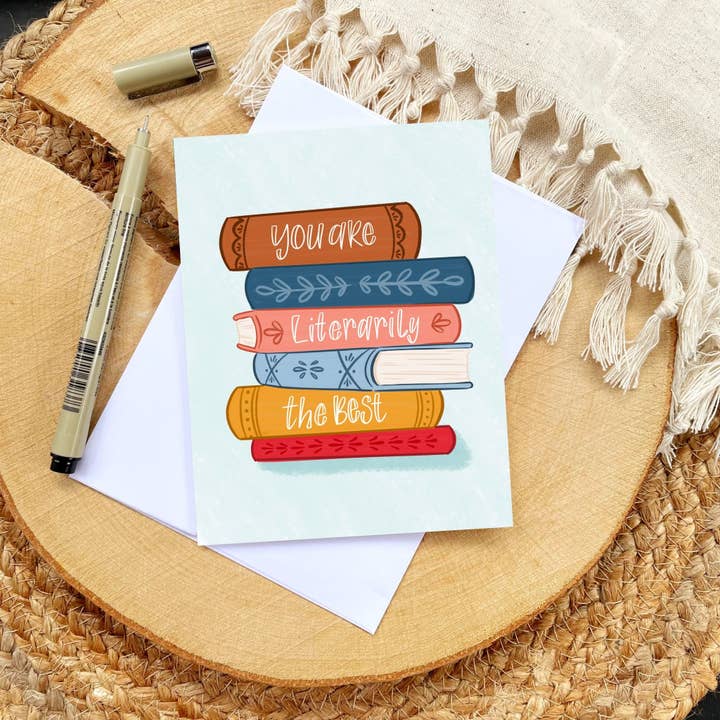 You are
Literarily
the Best